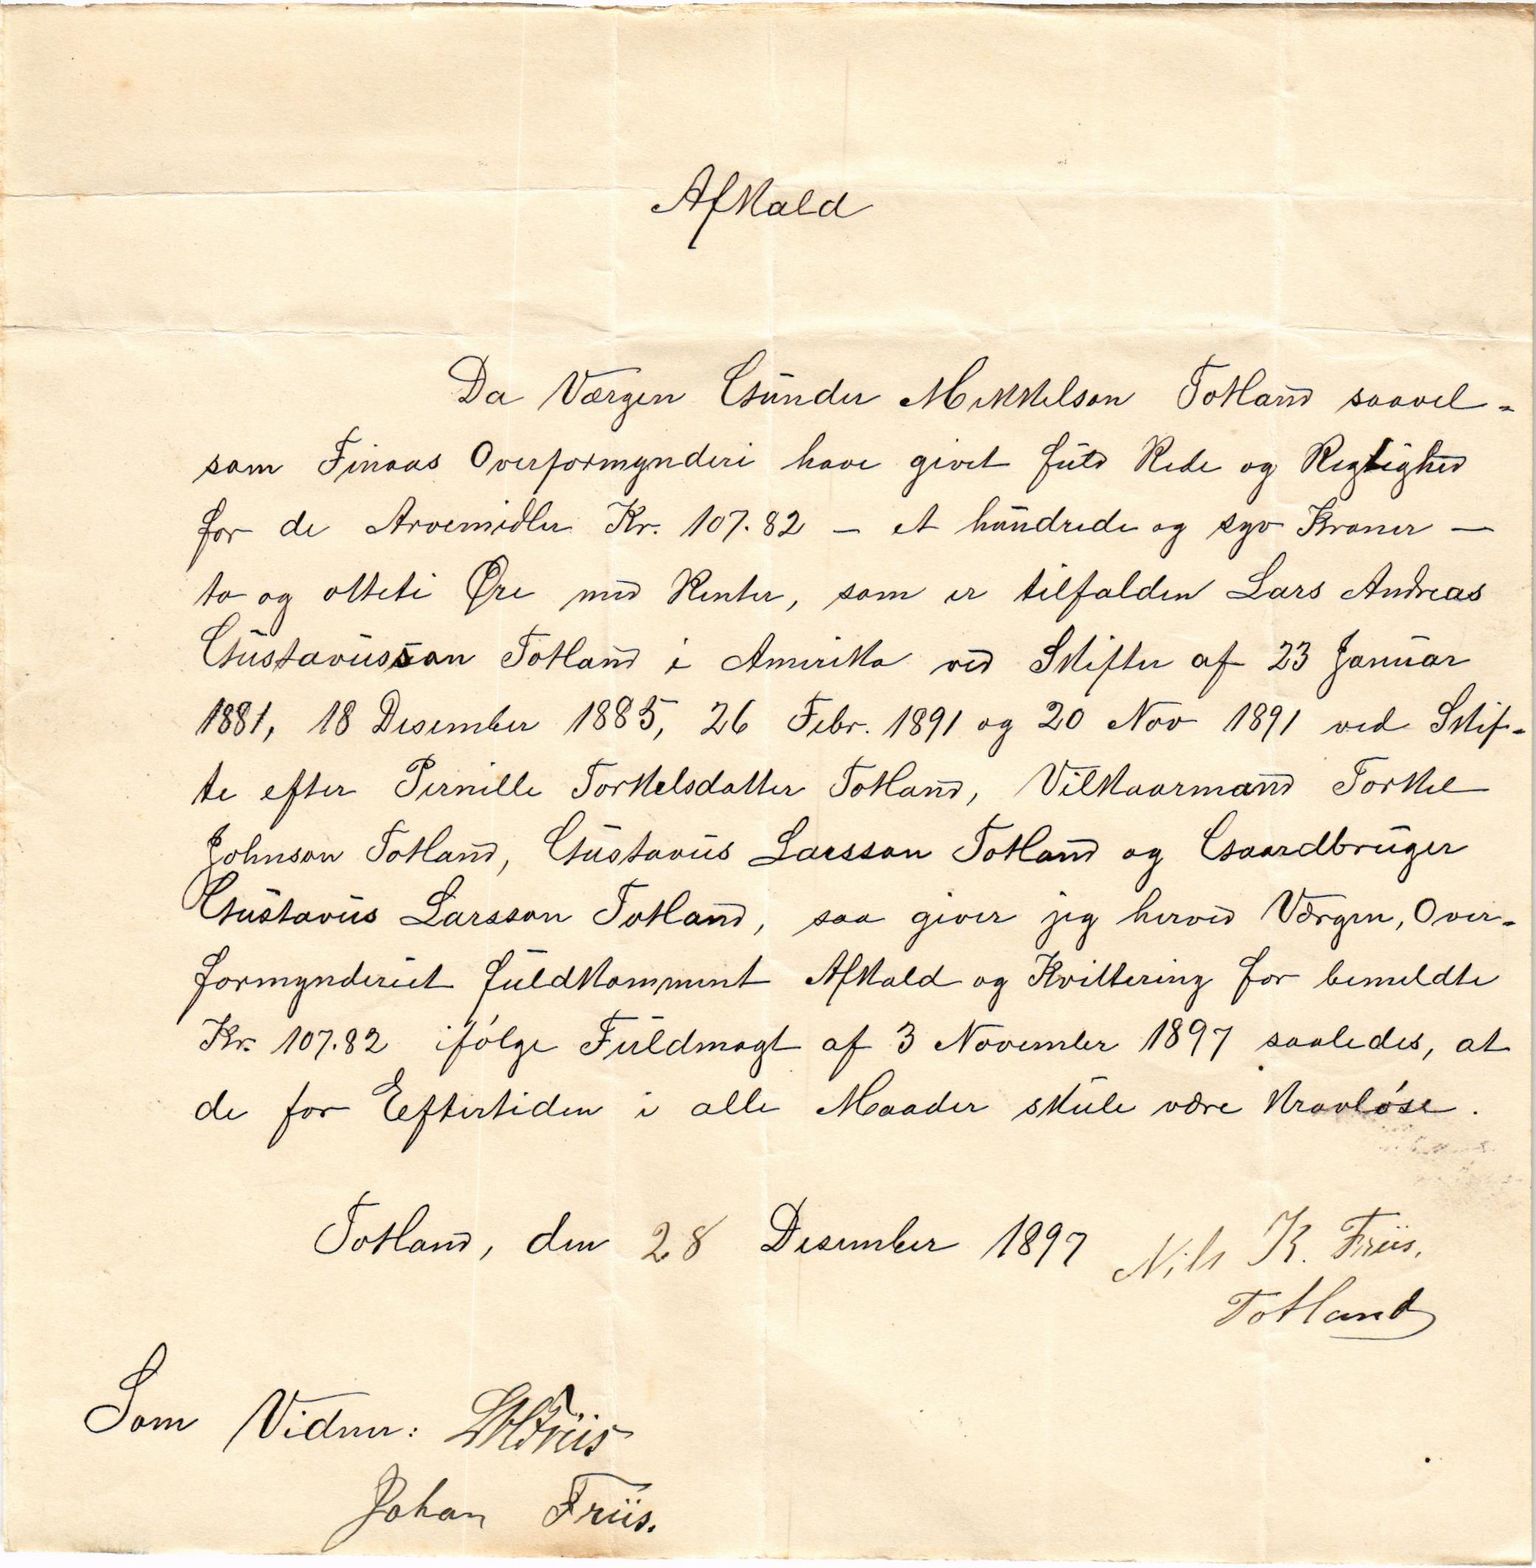 Afkald
Da Værgen Gunder Mikkelson Totland saavel-
som Finaas Overformynderi have givet fuld Rede og Rigtighed
for de Arvemidler Kr. 107.82 – et hundrede og syv Kroner –
to og otteti Øre med Renter, som er tilfalden Lars Andreas
Gustavusson Totland i Amerika ved Skifter af 23 Januar
1881, 18 Desember 1885, 26 Febr. 1891 og 20 Nov 1891 ved Skif-
te efter Pernille Torkelsdatter Totland, Vilkaarmand Torkel
Johnson Totland, Gustavus Larsson Totland og Gaardbruger
Gustavus Larsson Totland, saa giver jeg herved Værgen, Over-
formynderiet fuldkomment Afkald og Kvittering for bemeldte
Kr. 107.82 ifølge Fuldmagt af 3 November 1897 saaledes, at
de for Eftertiden i alle Maader skule være kravløse.
Totland, den 28 Desember 1897 Nils K. Friis.
Totland
Som Vidner: Friis
Johan Friis.